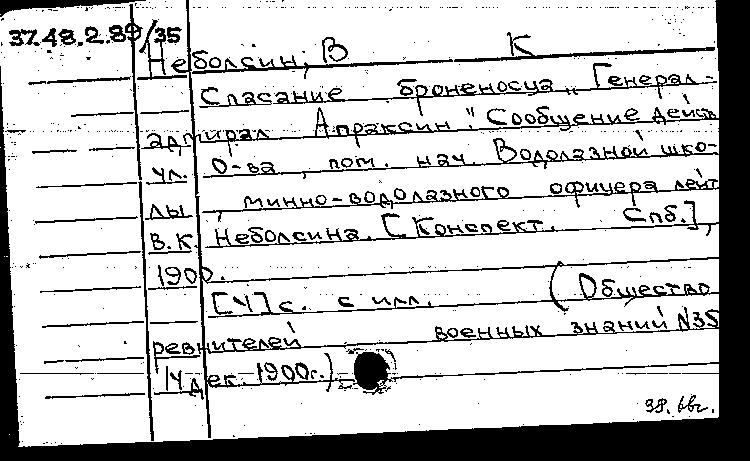 37.48.2.89/35
Неболсин, В К
Спасание броненосца „Генерал-
адмирал Апраксин". Сообщение действ
чл. О-ва, пом. нач. Водолазной шко-
лы, минно-водолазного офицера лейт
В.К. Неболсина. [Конспект. Спб.],
1900.
[4] с. с илл. (Общество
ревнителей военных знаний N35
14 дек. 1900г.)